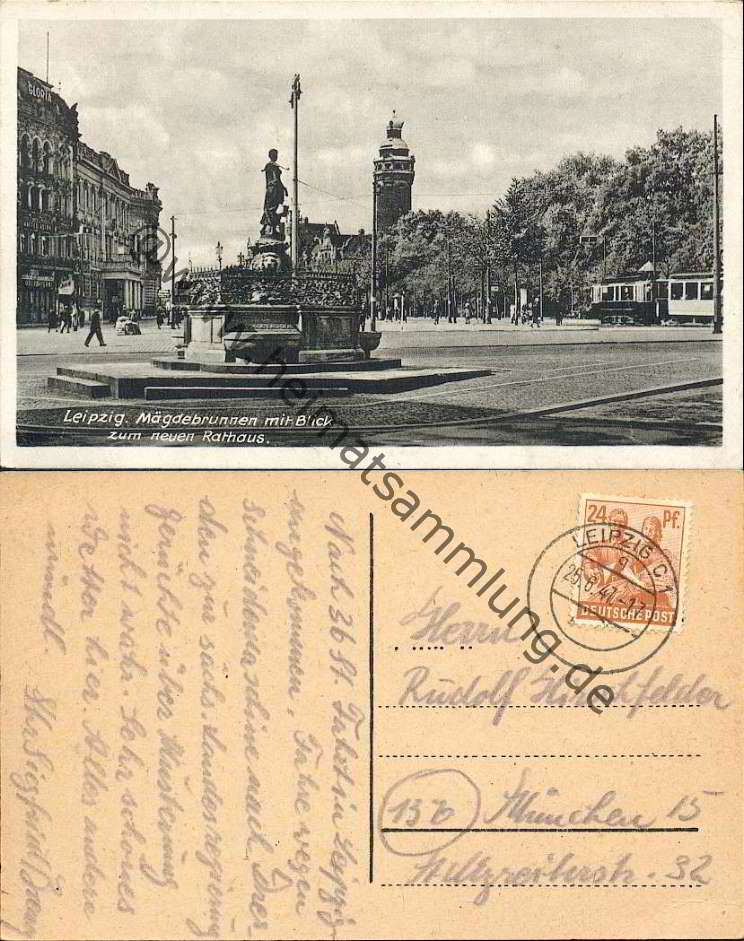 GLORIA
Leipzig. Mägdebrunnen mit Blick
zum neuen Rathaus.
www.heimatsammlung.de
Nach 36 St. Fahrt in Leipzig
angekommen. Fahre wegen
Schneidemaschine nach Dres-
den zur sächs. Landesregierung
Gerüchte über Musterung
nicht wahr. Sehr schönes
Wetter hier. Alles andere
mündl.
Ihr Siegfried
24 Pf.
DEUTSCHE POST
LEIPZIG C 1
q
25.6.47.-11
Herrn
Rudolf Hirschfelder
13b München 15
str. 32